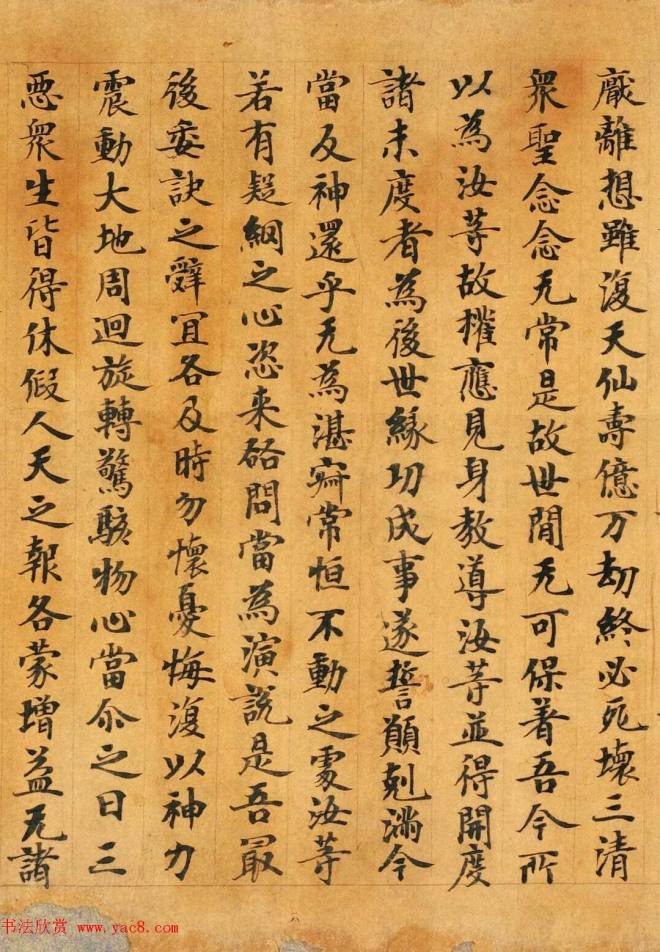 厭離想雖復天仙壽億万劫終必死壞三清
衆聖念念无常是故世間无可保著吾今所
以為汝等故權應見身教導汝等並得開度
諸未度者為後世緣功成事遂誓願剋滿今
當反神還乎无為湛寂常恒不動之處汝等
若有疑網之心恣来啓問當為演說是吾最
後委訣之辞冝各及時勿懷憂悔復以神力
震動大地周迴旋轉驚駭物心當尒之日三
惡衆生皆得休假人天之報各蒙增益无諸
书法欣赏 www.yac8.com